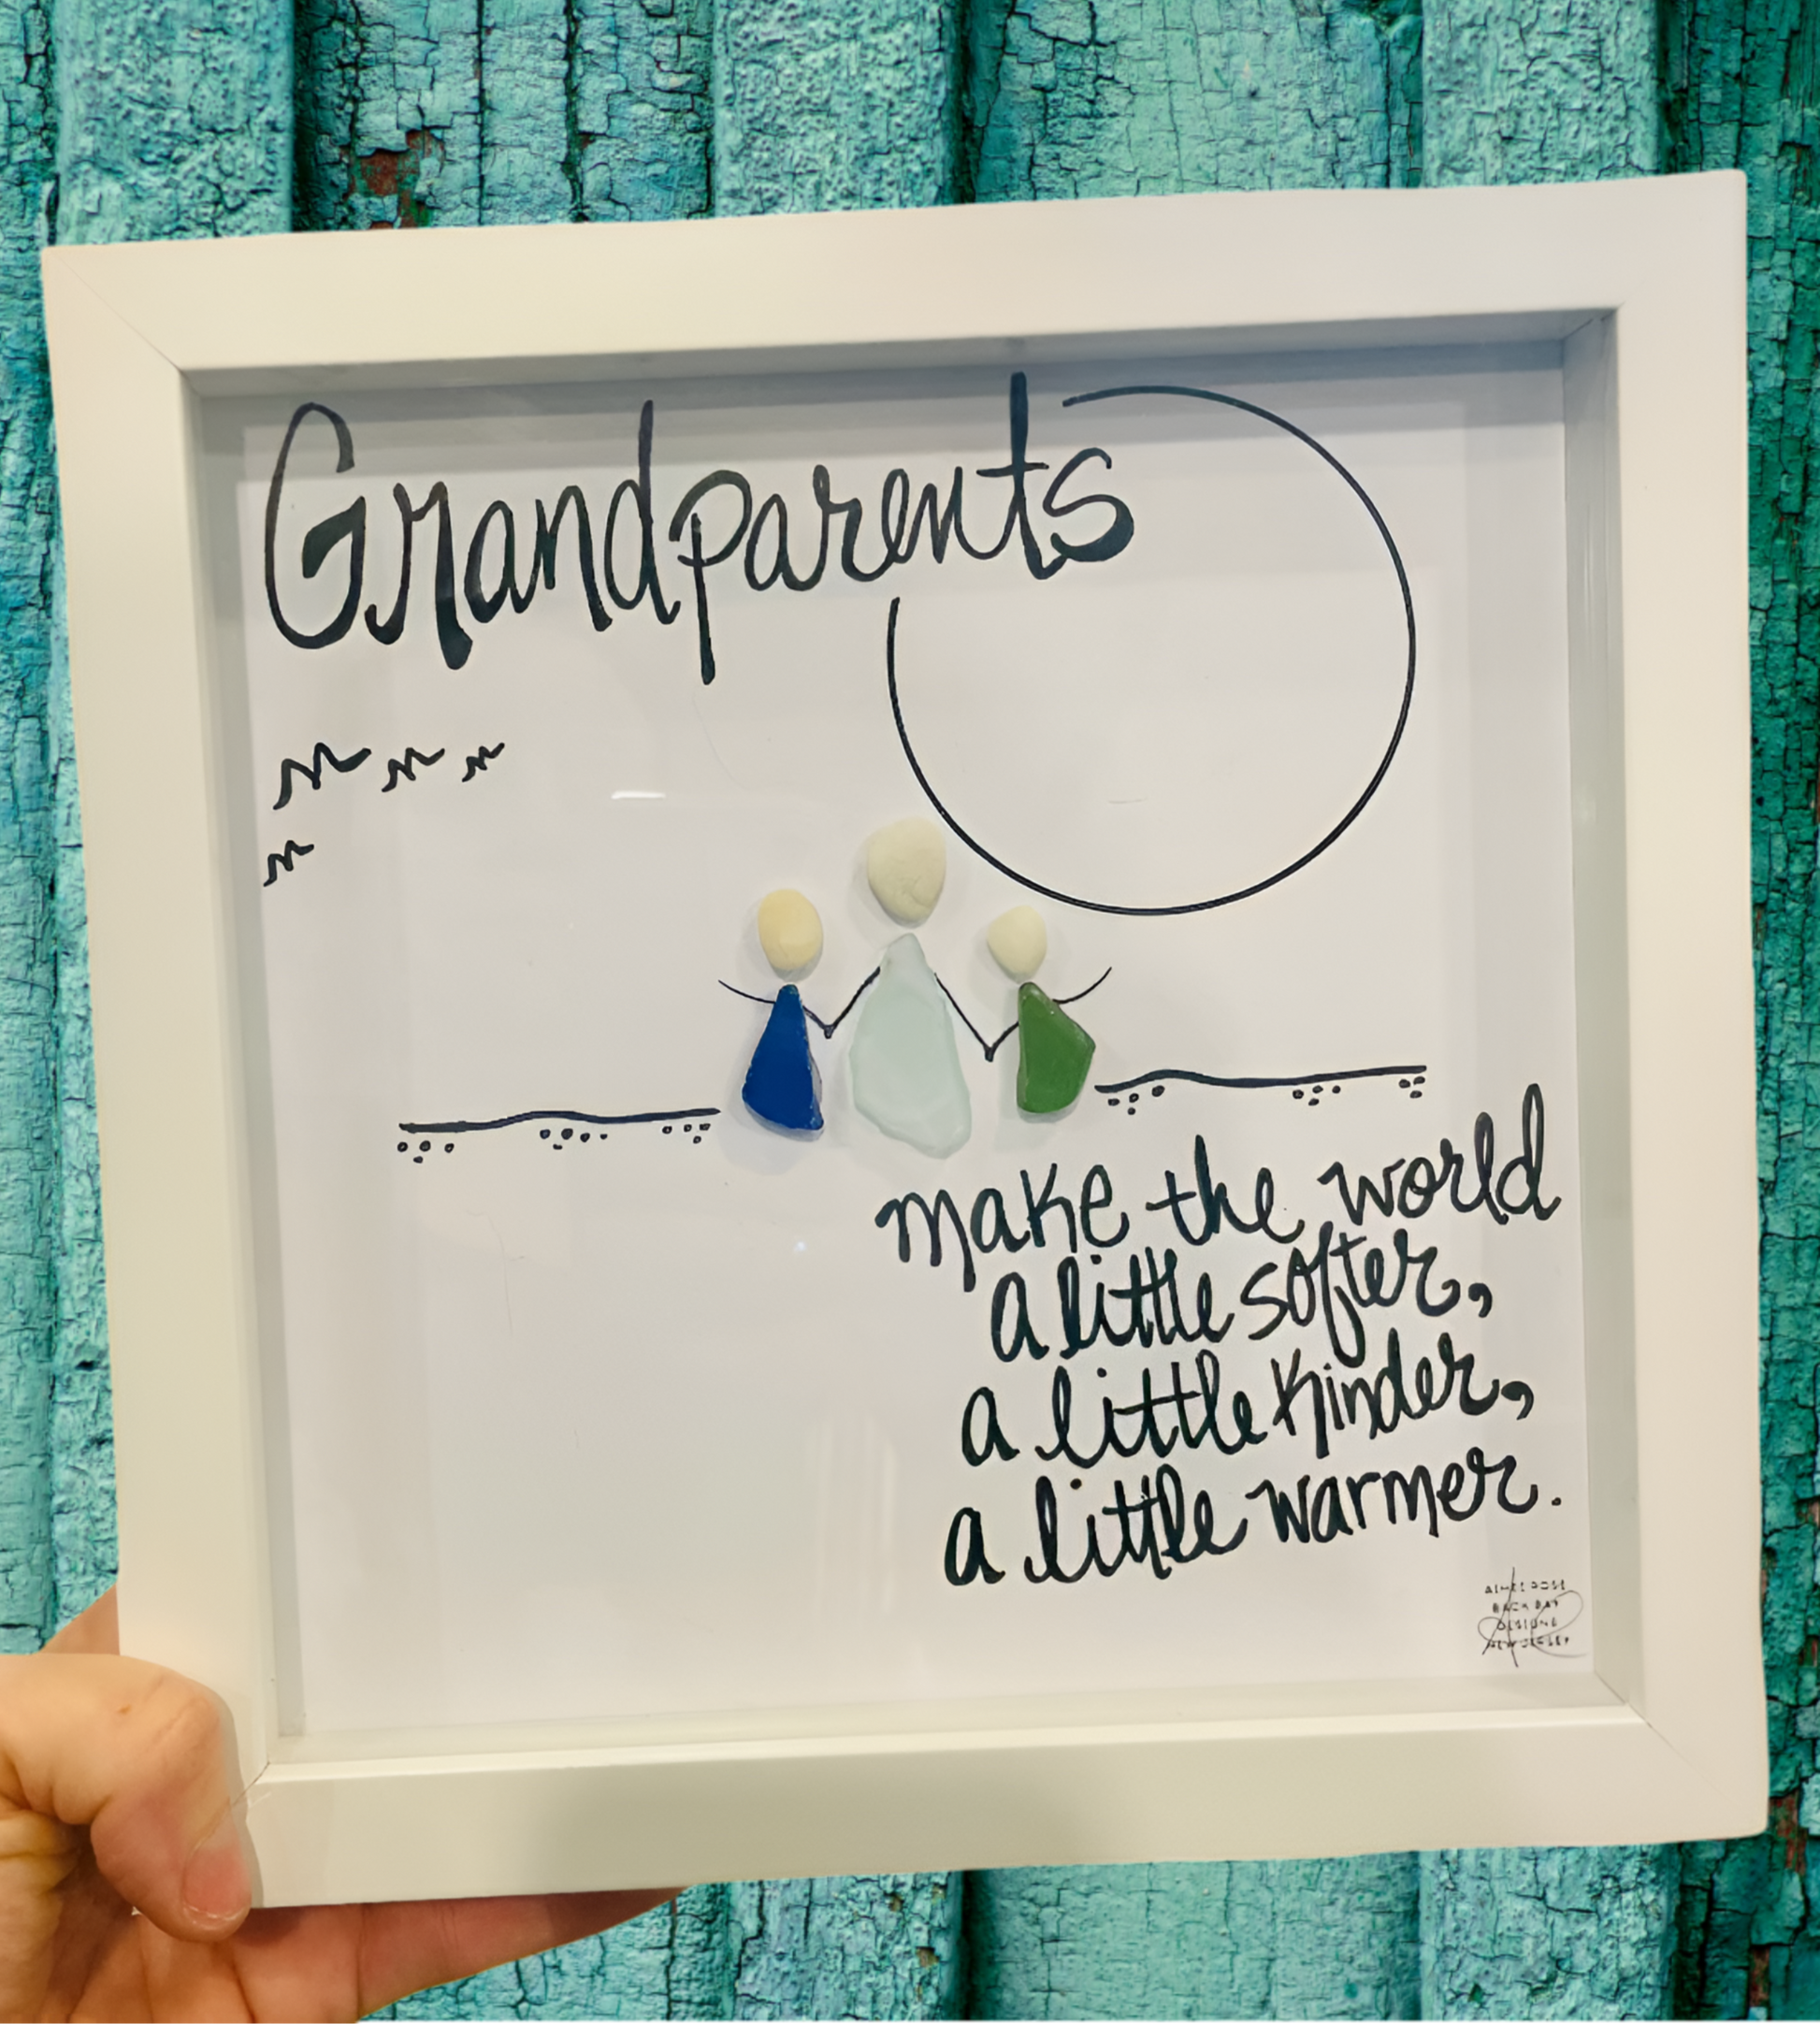 Grandparents
make the world
a little softer,
a little kinder,
a little warmer.
BACK BAY
DESIGNS
NEW JERSEY